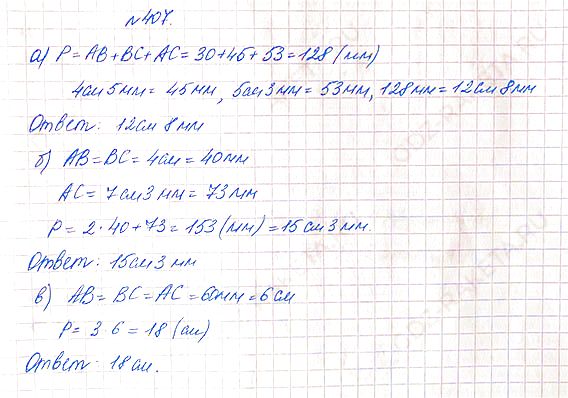 №407.
а) P = AB + BC + AC = 30 + 45 + 53 = 128 (мм)
4см 5мм = 45мм, 5см 3мм = 53мм, 128мм = 12см 8мм
Ответ: 12см 8мм
б) AB = BC = 4см = 40мм
AC = 7см 3мм = 73мм
P = 2 · 40 + 73 = 153 (мм) = 15см 3мм.
Ответ: 15см 3мм
в) AB = BC = AC = 60мм = 6см
P = 3 · 6 = 18 (см)
Ответ: 18см.